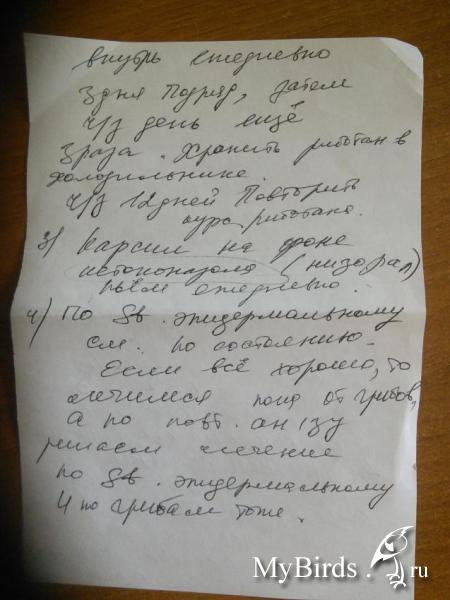 внутрь ежедневно
3 дня подряд, затем
ч/з день ещё
3 раза. Хранить риботан в
холодильнике.
ч/з 12 дней повторить
курс риботана.
3) Карсил на фоне
кетоконазола (низорал)
пьём ежедневно.
4) По St. эпидермальному
см. по состоянию.
Если всё хорошо, то
лечимся пока от грибов,
А по повт. ан-зу
решаем лечение
по St. эпидермальному
И по грибам тоже.
MyBirds.ru